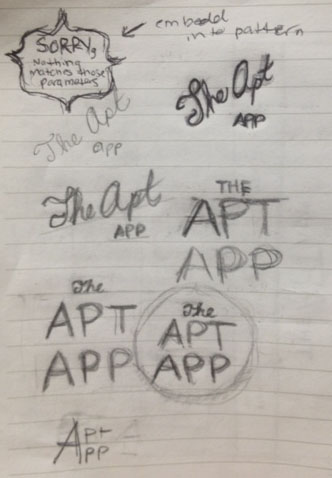 SORRY,
Nothing
matches those
parameters
embedd
into pattern
The Apt
App
The Apt
APP
The Apt
APP
THE
APT
APP
The
APT
APP
The
APT
APP
Apt
pp